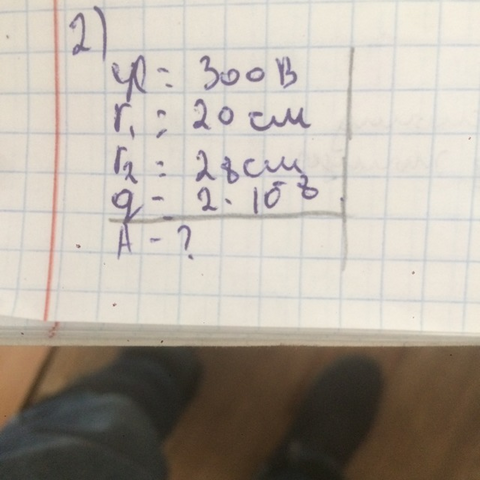 2)
φ = 300 В
r₁ = 20 см
r₂ = 28 см
q = 2 · 10⁻⁸
A - ?